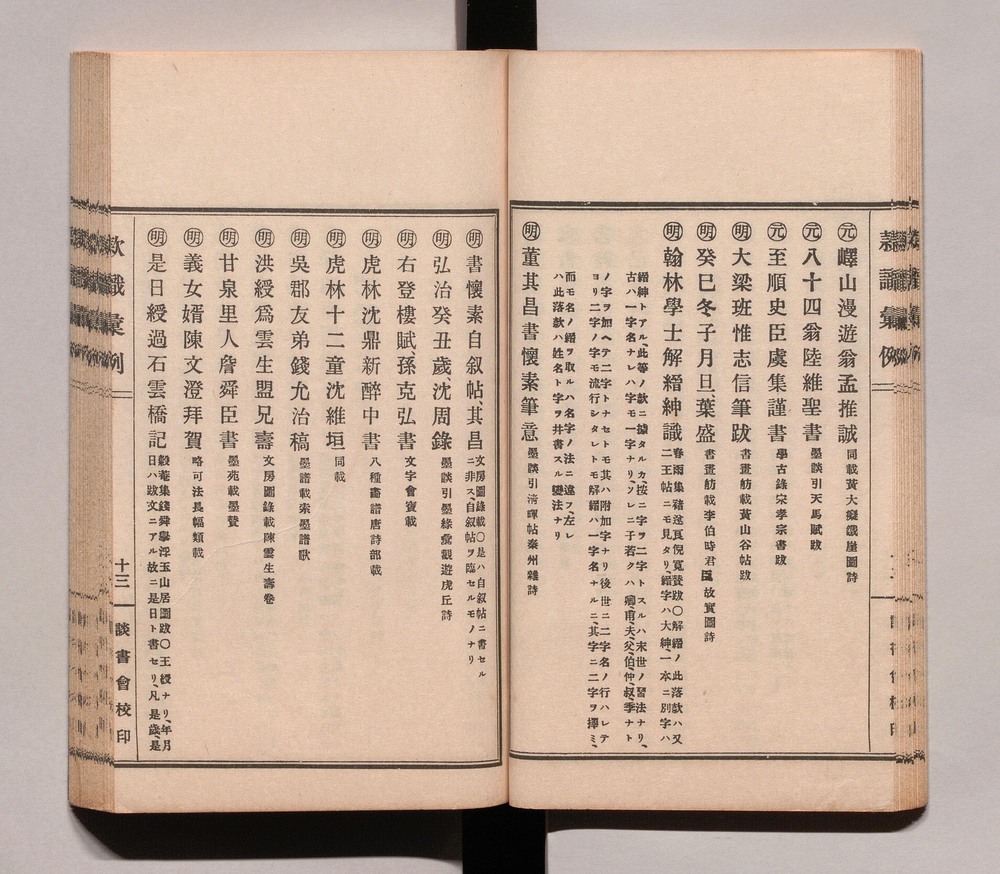 元 嶧山漫遊翁孟推誠 同載黃大癡鐵崖圖詩
元 八十四翁陸維聖書 墨談引天馬賦跋
元 至順史臣虞集謹書 學古錄宋孝宗書跋
明 大梁班惟志信筆跋 書畫舫載黃山谷帖跋
明 癸巳冬子月旦、葉盛 書畫舫載李伯時君臣故實圖詩
明 翰林學士解縉紳識 春雨集豬遂良倪寬贊跋〇解縉ノ此落款ハ又
二王帖ニモ見タリ、縉字ハ大紳、一本ニ別字ハ
縉紳トアル、此等ノ款ニ據タルカ、按ニ字ヲ二字トスルハ末世ノ習法ナリ、
古ハ一字名ナレハ字モ一字ナリ、ソレニ子若クハ卿、甫、夫、父、伯、仲、叔、季ナト
ノ字ヲ加ヘテ二字トナセトモ其ハ附加字ナリ後世ニ二字名ノ行ハレテ
ヨリ二字ノ字モ流行シタレトモ解縉ハ一字名ナルニ、其字ニ二字ヲ擇ミ、
而モ名ノ縉ヲ取ルハ名字ノ法ニ違フ、左レ
ハ此落款ハ姓名ト字ヲ井書スル變法ナリ
明 董其昌書懷素筆意 墨談引淸暉帖秦州雜詩
明 書懷素自叙帖、其昌 文房圖錄載〇是ハ自叙帖ニ書セル
ニ非ス、自叙帖ヲ臨セルモノナリ
明 弘治癸丑歲沈周錄 墨談引墨緣彙觀遊虎丘詩
明 右登樓賦、孫克弘書 文字會寶載
明 虎林沈鼎新醉中書 八種畵譜唐詩部載
明 虎林十二童沈維垣 同載
明 吳郡友弟錢允治稿 墨譜載索墨譜歌
明 洪綬爲雲生盟兄壽 文房圖錄載陳雲生壽卷
明 甘泉里人詹舜臣書 墨苑載墨贊
明 義女婿陳文澄拜賀 略可法長幅類載
明 是日綬過石雲橋記 穀菴集錢舜擧浮玉山居圖跋〇王綬ナリ、年月
日ハ跋文ニアル故ニ是日ト書セリ、凡是歲、是
款識彙例
十三
談書會校印